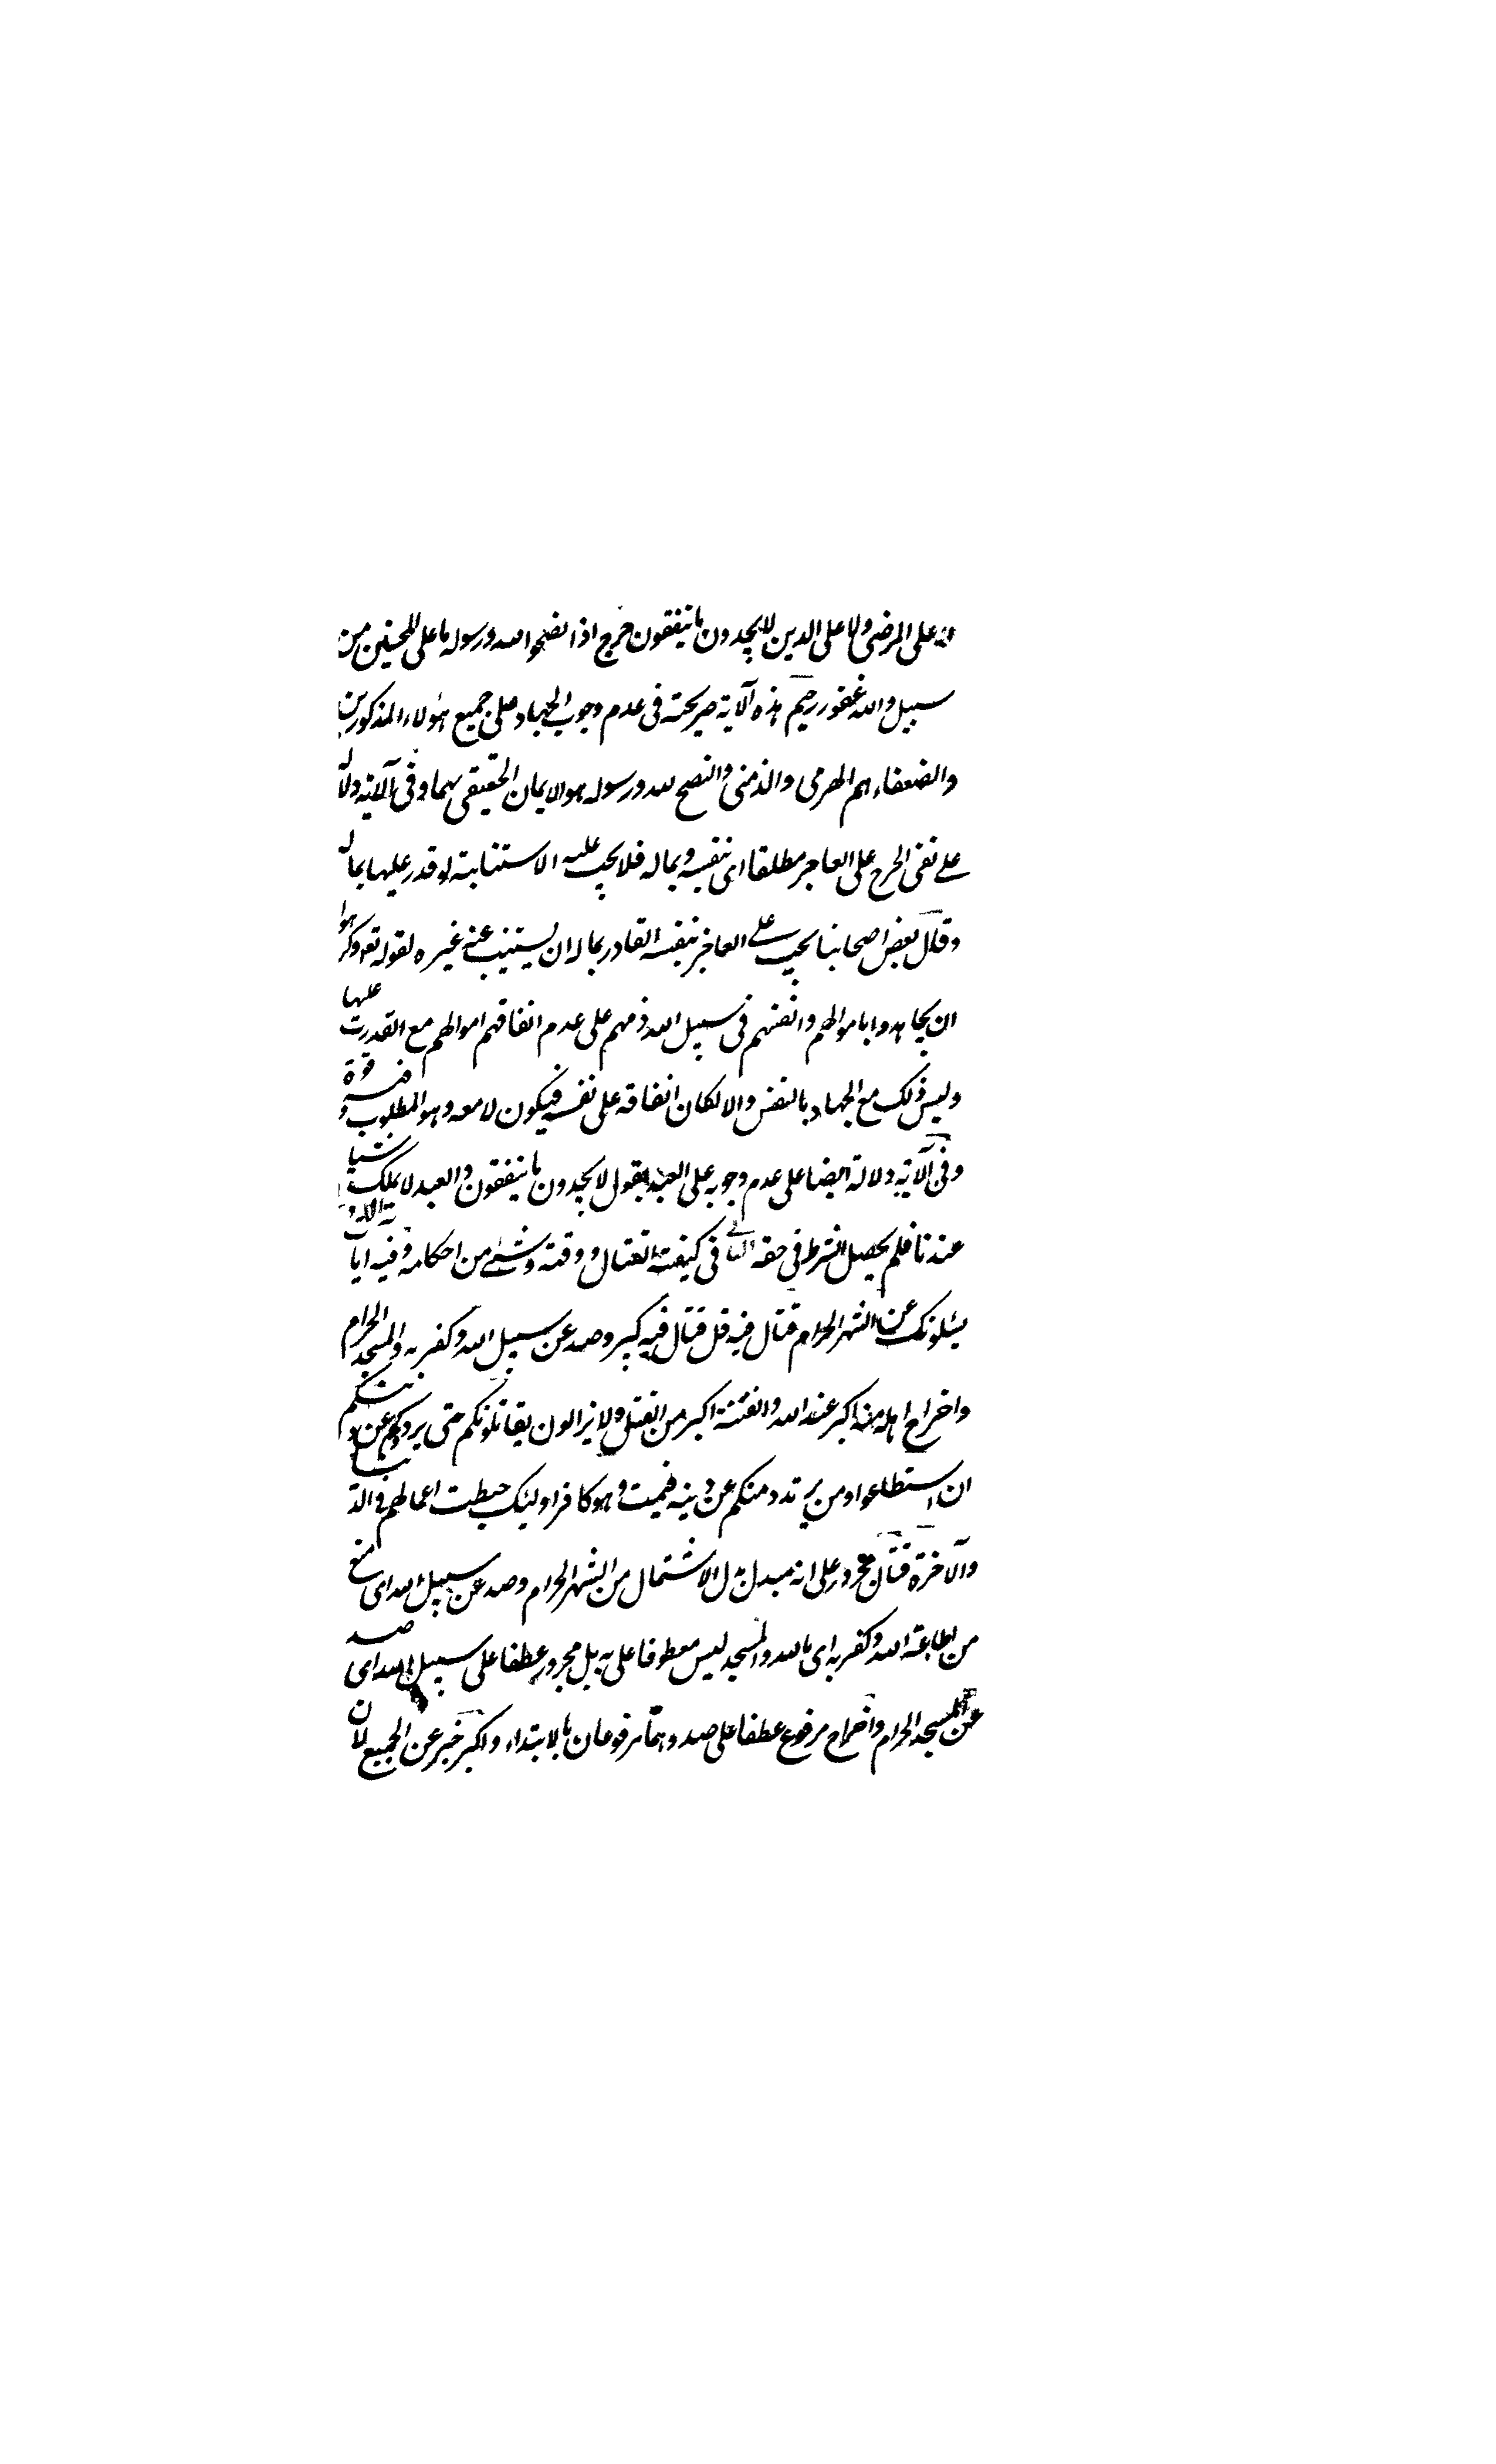 ولا على المرضى ولا على الذين لا يجدون ما ينفقون حرج اذا نصحوا لله ورسوله ما على المحسنين من
سبيل والله غفور رحيم هذه الآية صريحة فى عدم وجوب الجهاد على جميع هؤلاء المذكورين
والضعفاء هم الهرمى والزمنى والنصح لله ورسوله هو الايمان الحقيقى بهما وفى الآية دلالة
على نفى الحرج على العاجز مطلقا اى بنفسه وبماله فلا يجب عليه الاستنابة لو قدر عليها بماله
وقال بعض اصحابنا يجب على العاجز بنفسه القادر بماله ان يستنيب عنه غيره لقوله تع وكرهوا
ان يجاهدوا باموالهم وانفسهم فى سبيل الله ذمهم على عدم انفاقهم اموالهم مع القدرت عليها
وليس ذلك مع الجهاد بالنفس والا لكان انفاقه على نفسه فيكون لا معه وهو المطلوب وفيه قوة
وفى الآية دلالة ايضا على عدم وجوبه على العبد بقول لا يجدون ما ينفقون والعبد لا يملك شيا
عندنا فلم يحصل الشرط فى حقه الثانى فى كيفية القتال ووقته وشئ من احكامه وفيه ايات
يسئلونك عن الشهر الحرام قتال فيه قل قتال فيه كبير وصد عن سبيل الله وكفر به والمسجد الحرام
واخراج اهله منه اكبر عند الله والفتنة اكبر من القتل ولا يزالون يقاتلونكم حتى يردوكم عن دينكم
ان استطاعوا ومن يرتدد منكم عن دينه فيمت وهو كافر اولئك حبطت اعمالهم فى الدنيا
والآخرة قتال مجرور على انه مبدل بدل الاشتمال من الشهر الحرام وصد عن سبيل الله اى منع
من اطاعة الله وكفر به اى بالله والمسجد ليس معطوفا على به بل مجرور عطفا على سبيل الله اى صد
عن المسجد الحرام واخراج مرفوع عطفا على صد وهما مرفوعان بالابتداء واكبر خبر عن الجميع لان